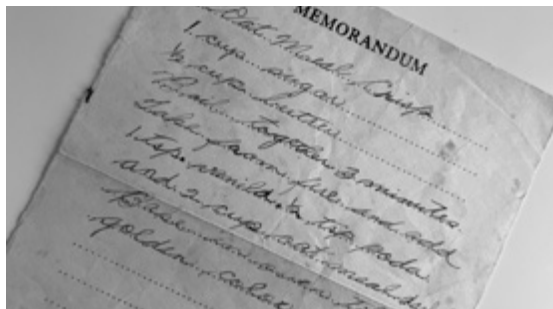 MEMORANDUM
Oat Meal Crisp
1 cup sugar
½ cup butter
Boil together 3 minutes
Take from fire and add
1 tsp. vanila ½ tsp soda
and 2 cup oat meal
in oven
golden color